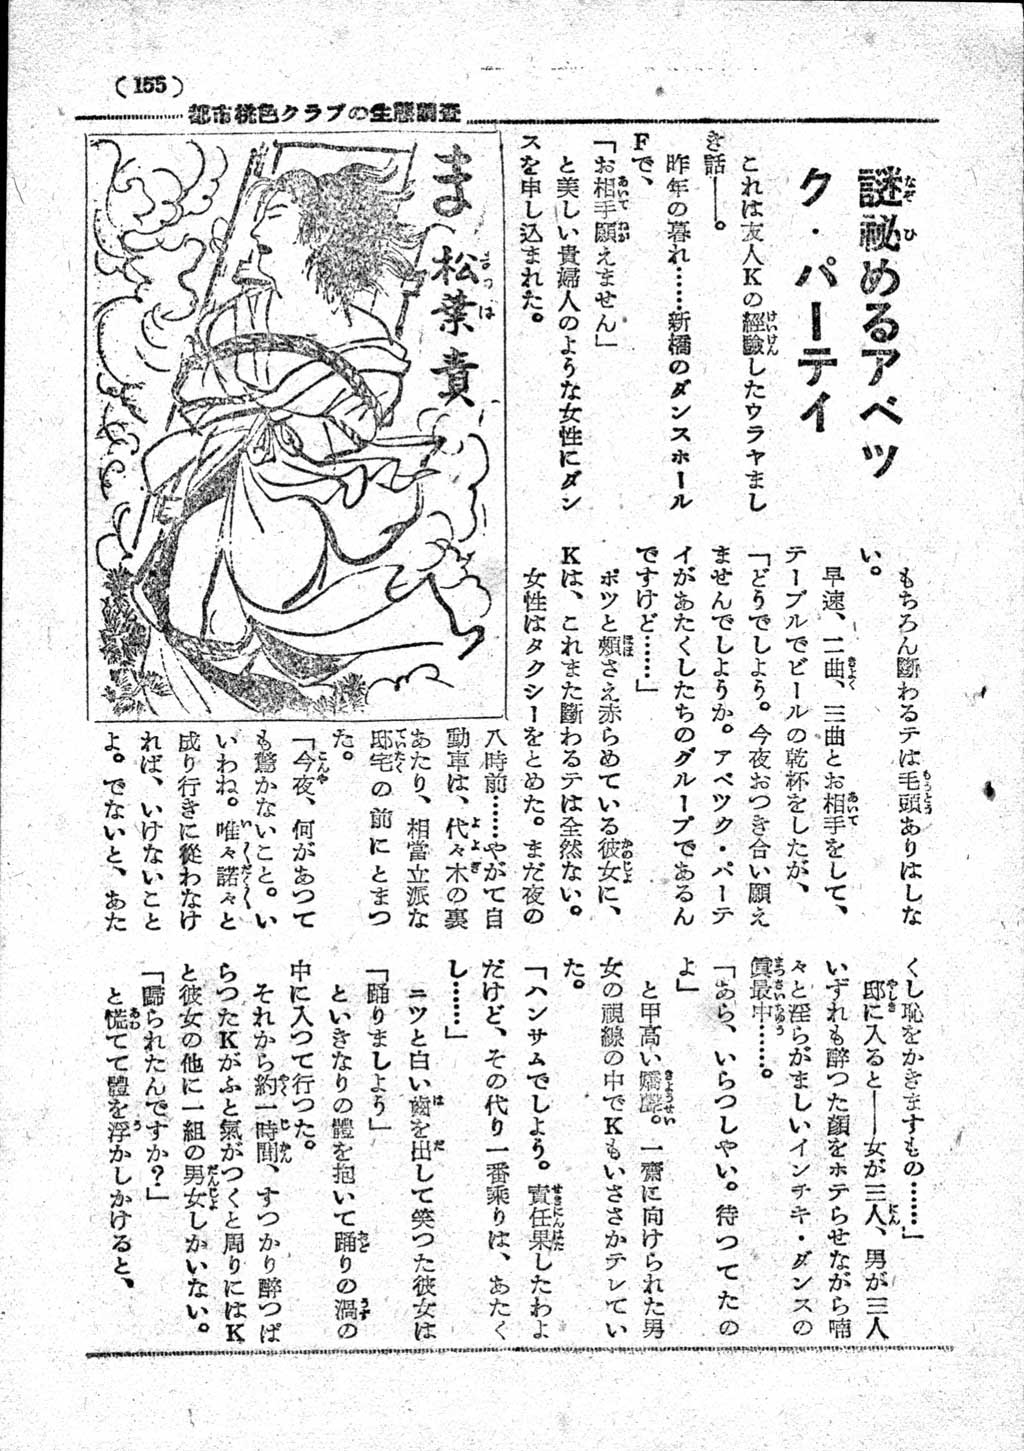 (155)
都市桃色クラブの生態調査
謎祕めるアベツ
ク・パーテイ
これは友人Kの經驗したウラヤまし
き話――。
昨年の暮れ……新橋のダンスホール
Fで、
「お相手願えません」
と美しい貴婦人のような女性にダン
スを申し込まれた。
ま
松葉責
もちろん斷わるテは毛頭ありはしな
い。
早速、二曲、三曲とお相手をして、
テーブルでビールの乾杯をしたが、
「どうでしよう。今夜おつき合い願え
ませんでしようか。アベツク・パーテ
イがあたくしたちのグループであるん
ですけど……」
ポツと頰さえ赤らめている彼女に、
Kは、これまた斷わるテは全然ない。
女性はタクシーをとめた。まだ夜の
八時前……やがて自
動車は、代々木の裏
あたり、相當立派な
邸宅の前にとまつ
た。
「今夜、何があつて
も驚かないこと。い
いわね。唯々諾々と
成り行きに從わなけ
れば、いけないこと
よ。でないと、あた
くし恥をかきますもの……」
邸に入ると――女が三人、男が三人
いずれも醉つた顔をホテらせながら喃
々と淫らがましいインチキ・ダンスの
眞最中……。
「あら、いらつしやい。待つてたの
よ」
と甲高い嬌聲。一齊に向けられた男
女の視線の中でKもいささかテレてい
た。
「ハンサムでしよう。責任果したわよ
だけど、その代り一番乘りは、あたく
し……」
ニツと白い齒を出して笑つた彼女は
「踊りましよう」
といきなりの體を抱いて踊りの渦の
中に入つて行つた。
それから約一時間、すつかり醉つぱ
らつたKがふと氣がつくと周りにはK
と彼女の他に一組の男女しかいない。
「歸られたんですか？」
と慌てて體を浮かしかけると、